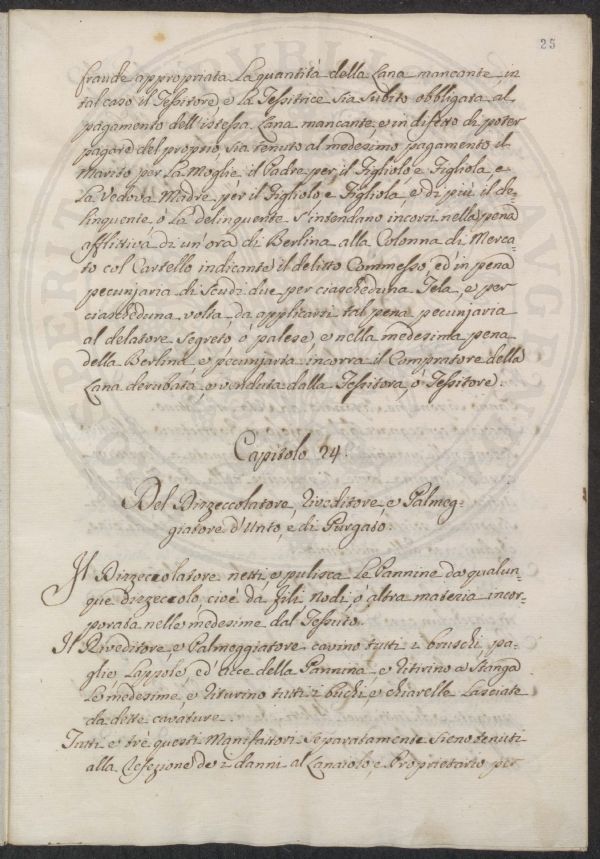 25
fraude appropriata la quantità della Lana mancante, in
tal caso il Tessitore, e la Tessitrice sia subito obbligata al
pagamento dell'istessa Lana mancante, e in difetto di poter
pagare del proprio, sia tenuto al medesimo pagamento il
Marito per la Moglie, il Padre per il Figliolo e Figliola, e
La Vedova Madre per il Figliolo, e Figliola, e di più il de-
linquente, o la delinquente s'intendano incorsi nella pena
afflittiva di un'ora di Berlina alla Colonna di Merca-
to col Cartello indicante il delitto Commesso, ed in pena
pecunjaria di Scudi due per ciascheduna Tela, e per
ciascheduna volta, da applicarsi tal pena pecunjaria
al delatore segreto, ò palese, e nella medesima pena
della Berlina, e pecunjaria incorra il Compratore della
Lana derubata, e venduta dalla Tessitora, ò Tessitore.
Capitolo 24.
Del Dizzeccolatore, Riveditore, e Palmeg-
giatore d'Unto, e di Purgato.
Il Dizzeccolatore netti, e pulisca le Pannine da qualun-
que dizeccolo, cioè da fili, nodi, ò altra materia incor-
porata nelle medesime dal Tessuto.
Il Riveditore, e Palmeggiatore cavino tutti i bruschi, pa-
glie, Lappole, ed'acce della Pannina, e Ritirino a Stanga
Le medesime, e Riturino tutti i buchi, e chiarelle Lasciate
da dette cavature.
Tutti, e tré questi Manifattori separatamente sieno tenuti
alla Refezione de i danni al Lanaiolo, e Proprietario per